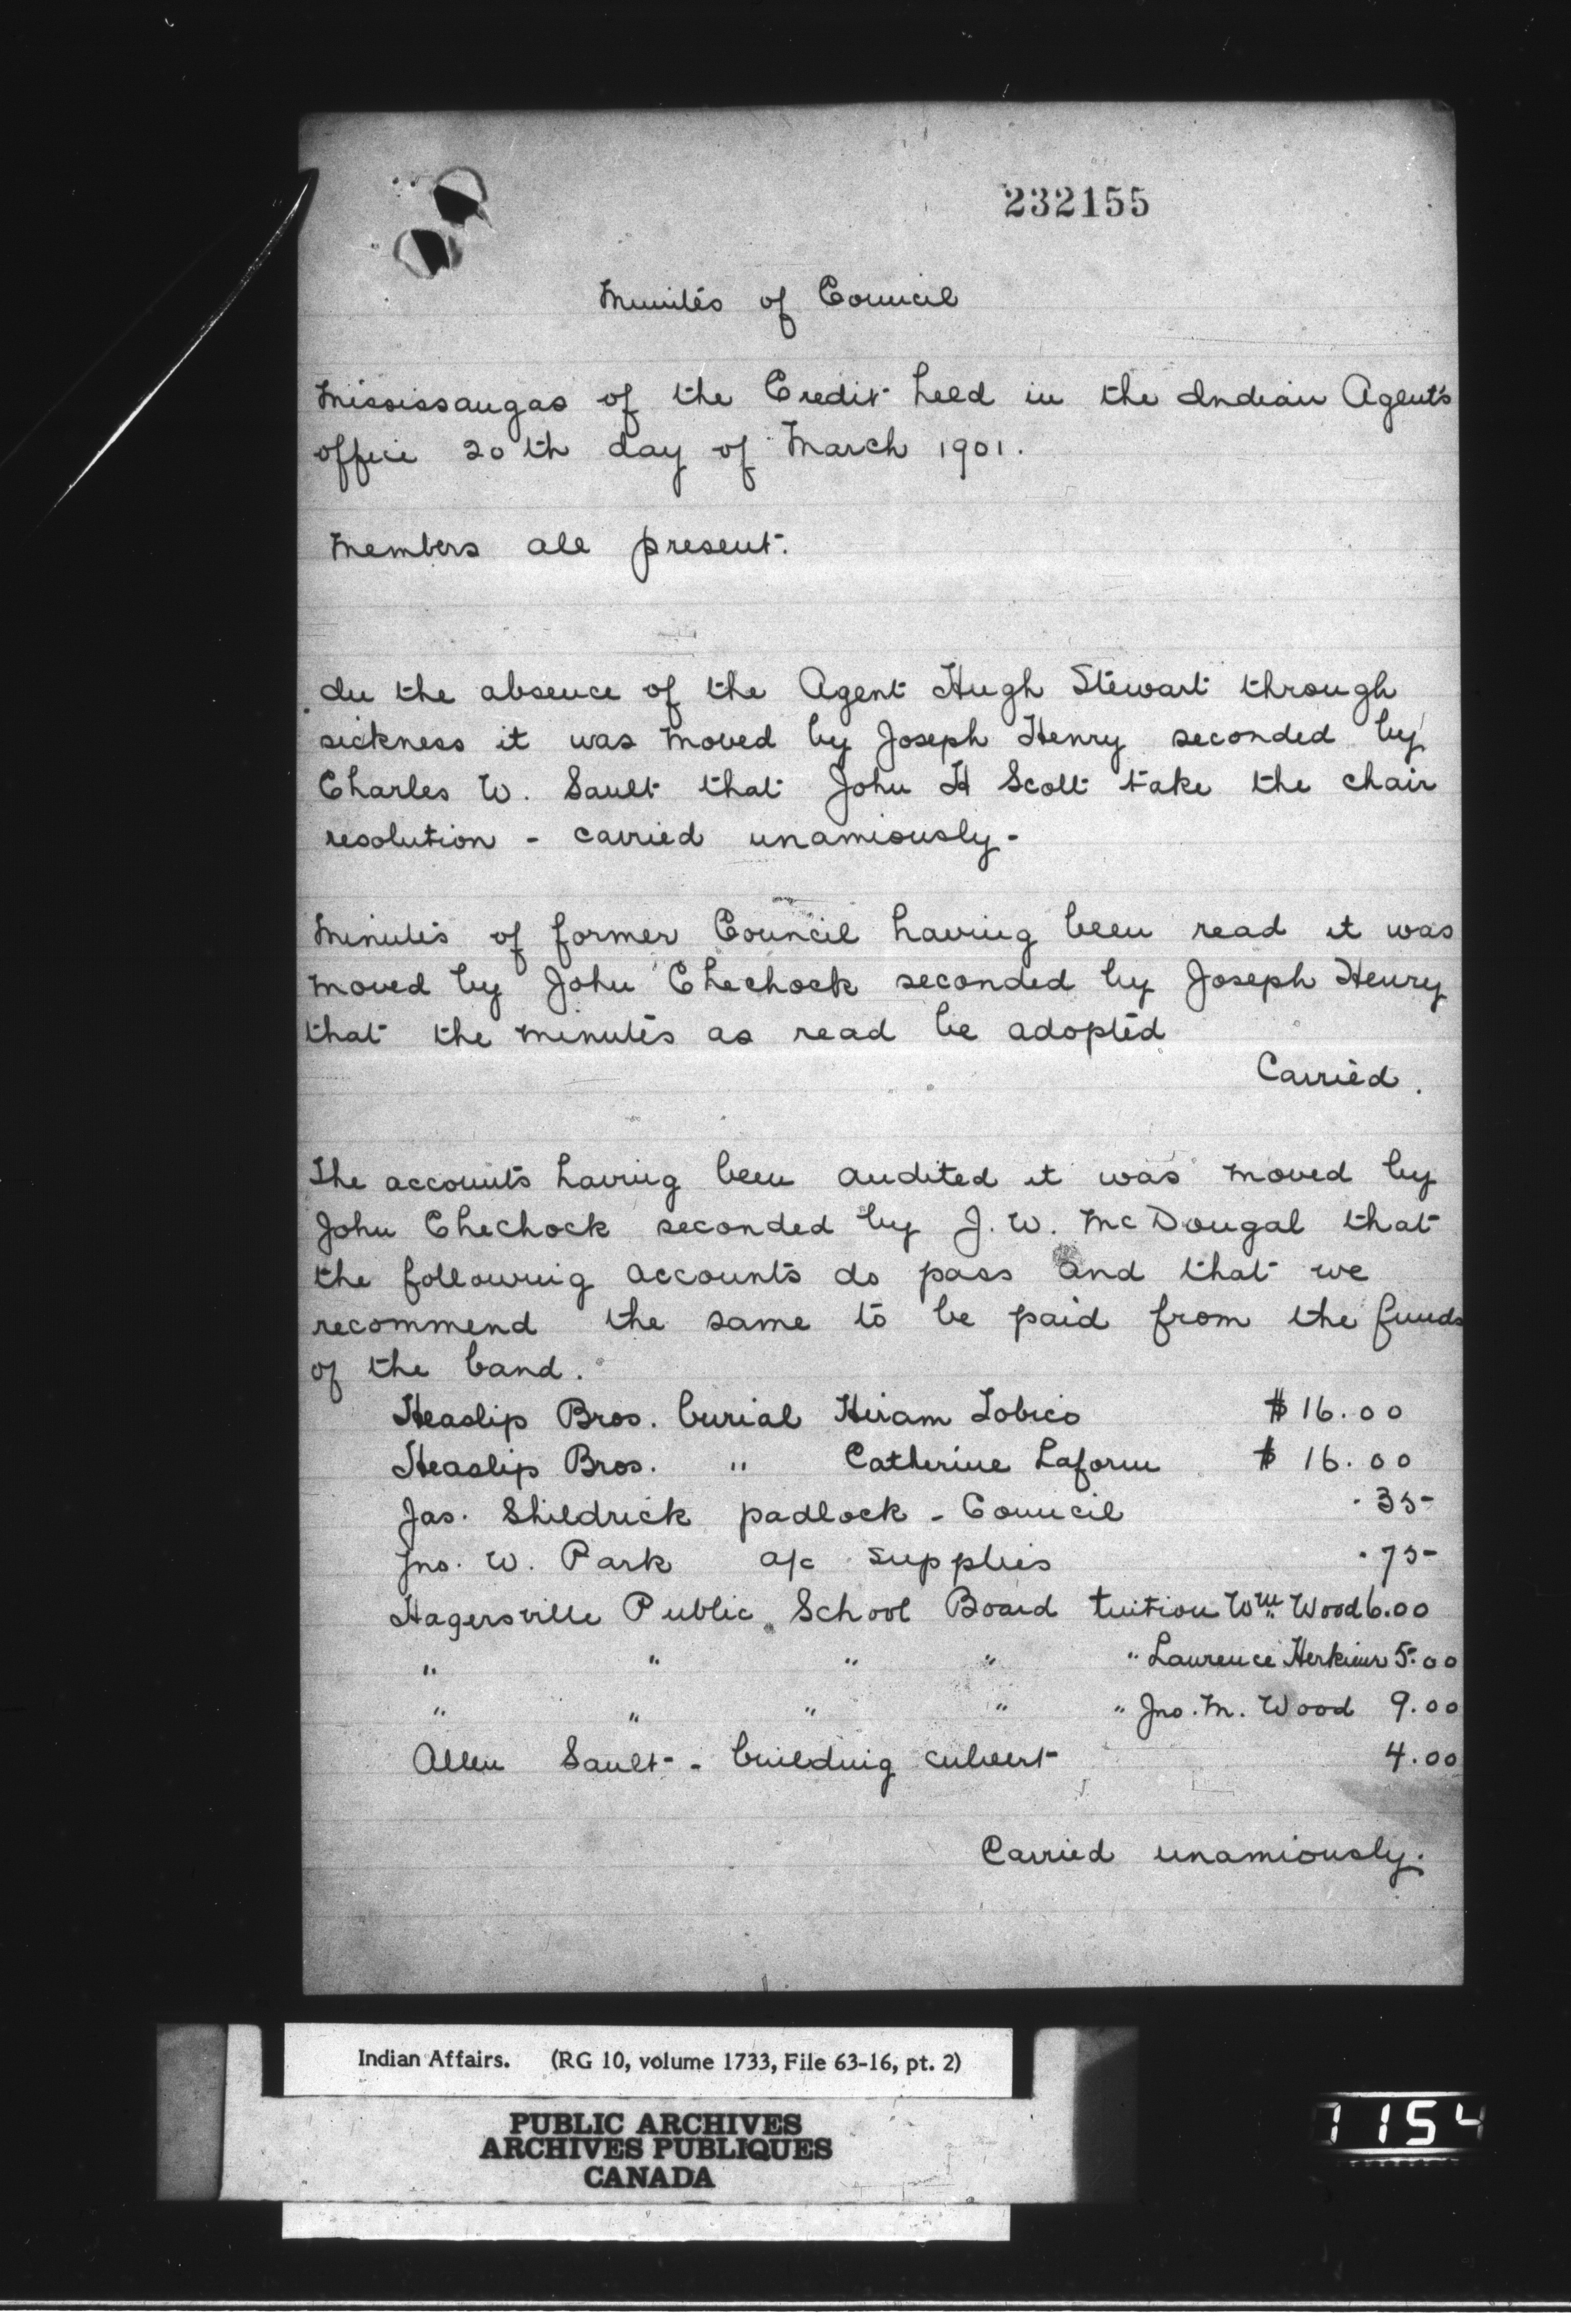 232155
Minutes of Council
Mississaugas of the Credit held in the Indian Agent's
office 20th day of March 1901.
Members all present.
In the absence of the Agent Hugh Stewart through
sickness it was moved by Joseph Henry seconded by
Charles W. Sault that John H Scott take the chair
resolution - carried unamiously -
Minutes of former Council having been read it was
moved by John Chechock seconded by Joseph Henry
that the minutes as read be adopted
Carried.
The accounts having been audited it was moved by
John Chechock seconded by J. W. McDougal that
the following accounts do pass and that we
recommend the same to be paid from the funds
of the band.
Heaslip Bros. burial Hiram Tobico $ 16.00
Heaslip Bros. " Catherine Laform $ 16.00
Jas. Shildrick padlock - Council .35
Jno. W. Park a/c supplies .75
Hagersville Public School Board tuition Wm Wood 6.00
" " " " " Laurence Herkimr 5.00
" " " " " Jno. M. Wood 9.00
Allen Sault - building culvert 4.00
Carried unamiously.
Indian Affairs. (RG 10, volume 1733, File 63-16, pt. 2)
PUBLIC ARCHIVES
ARCHIVES PUBLIQUES
CANADA
1154